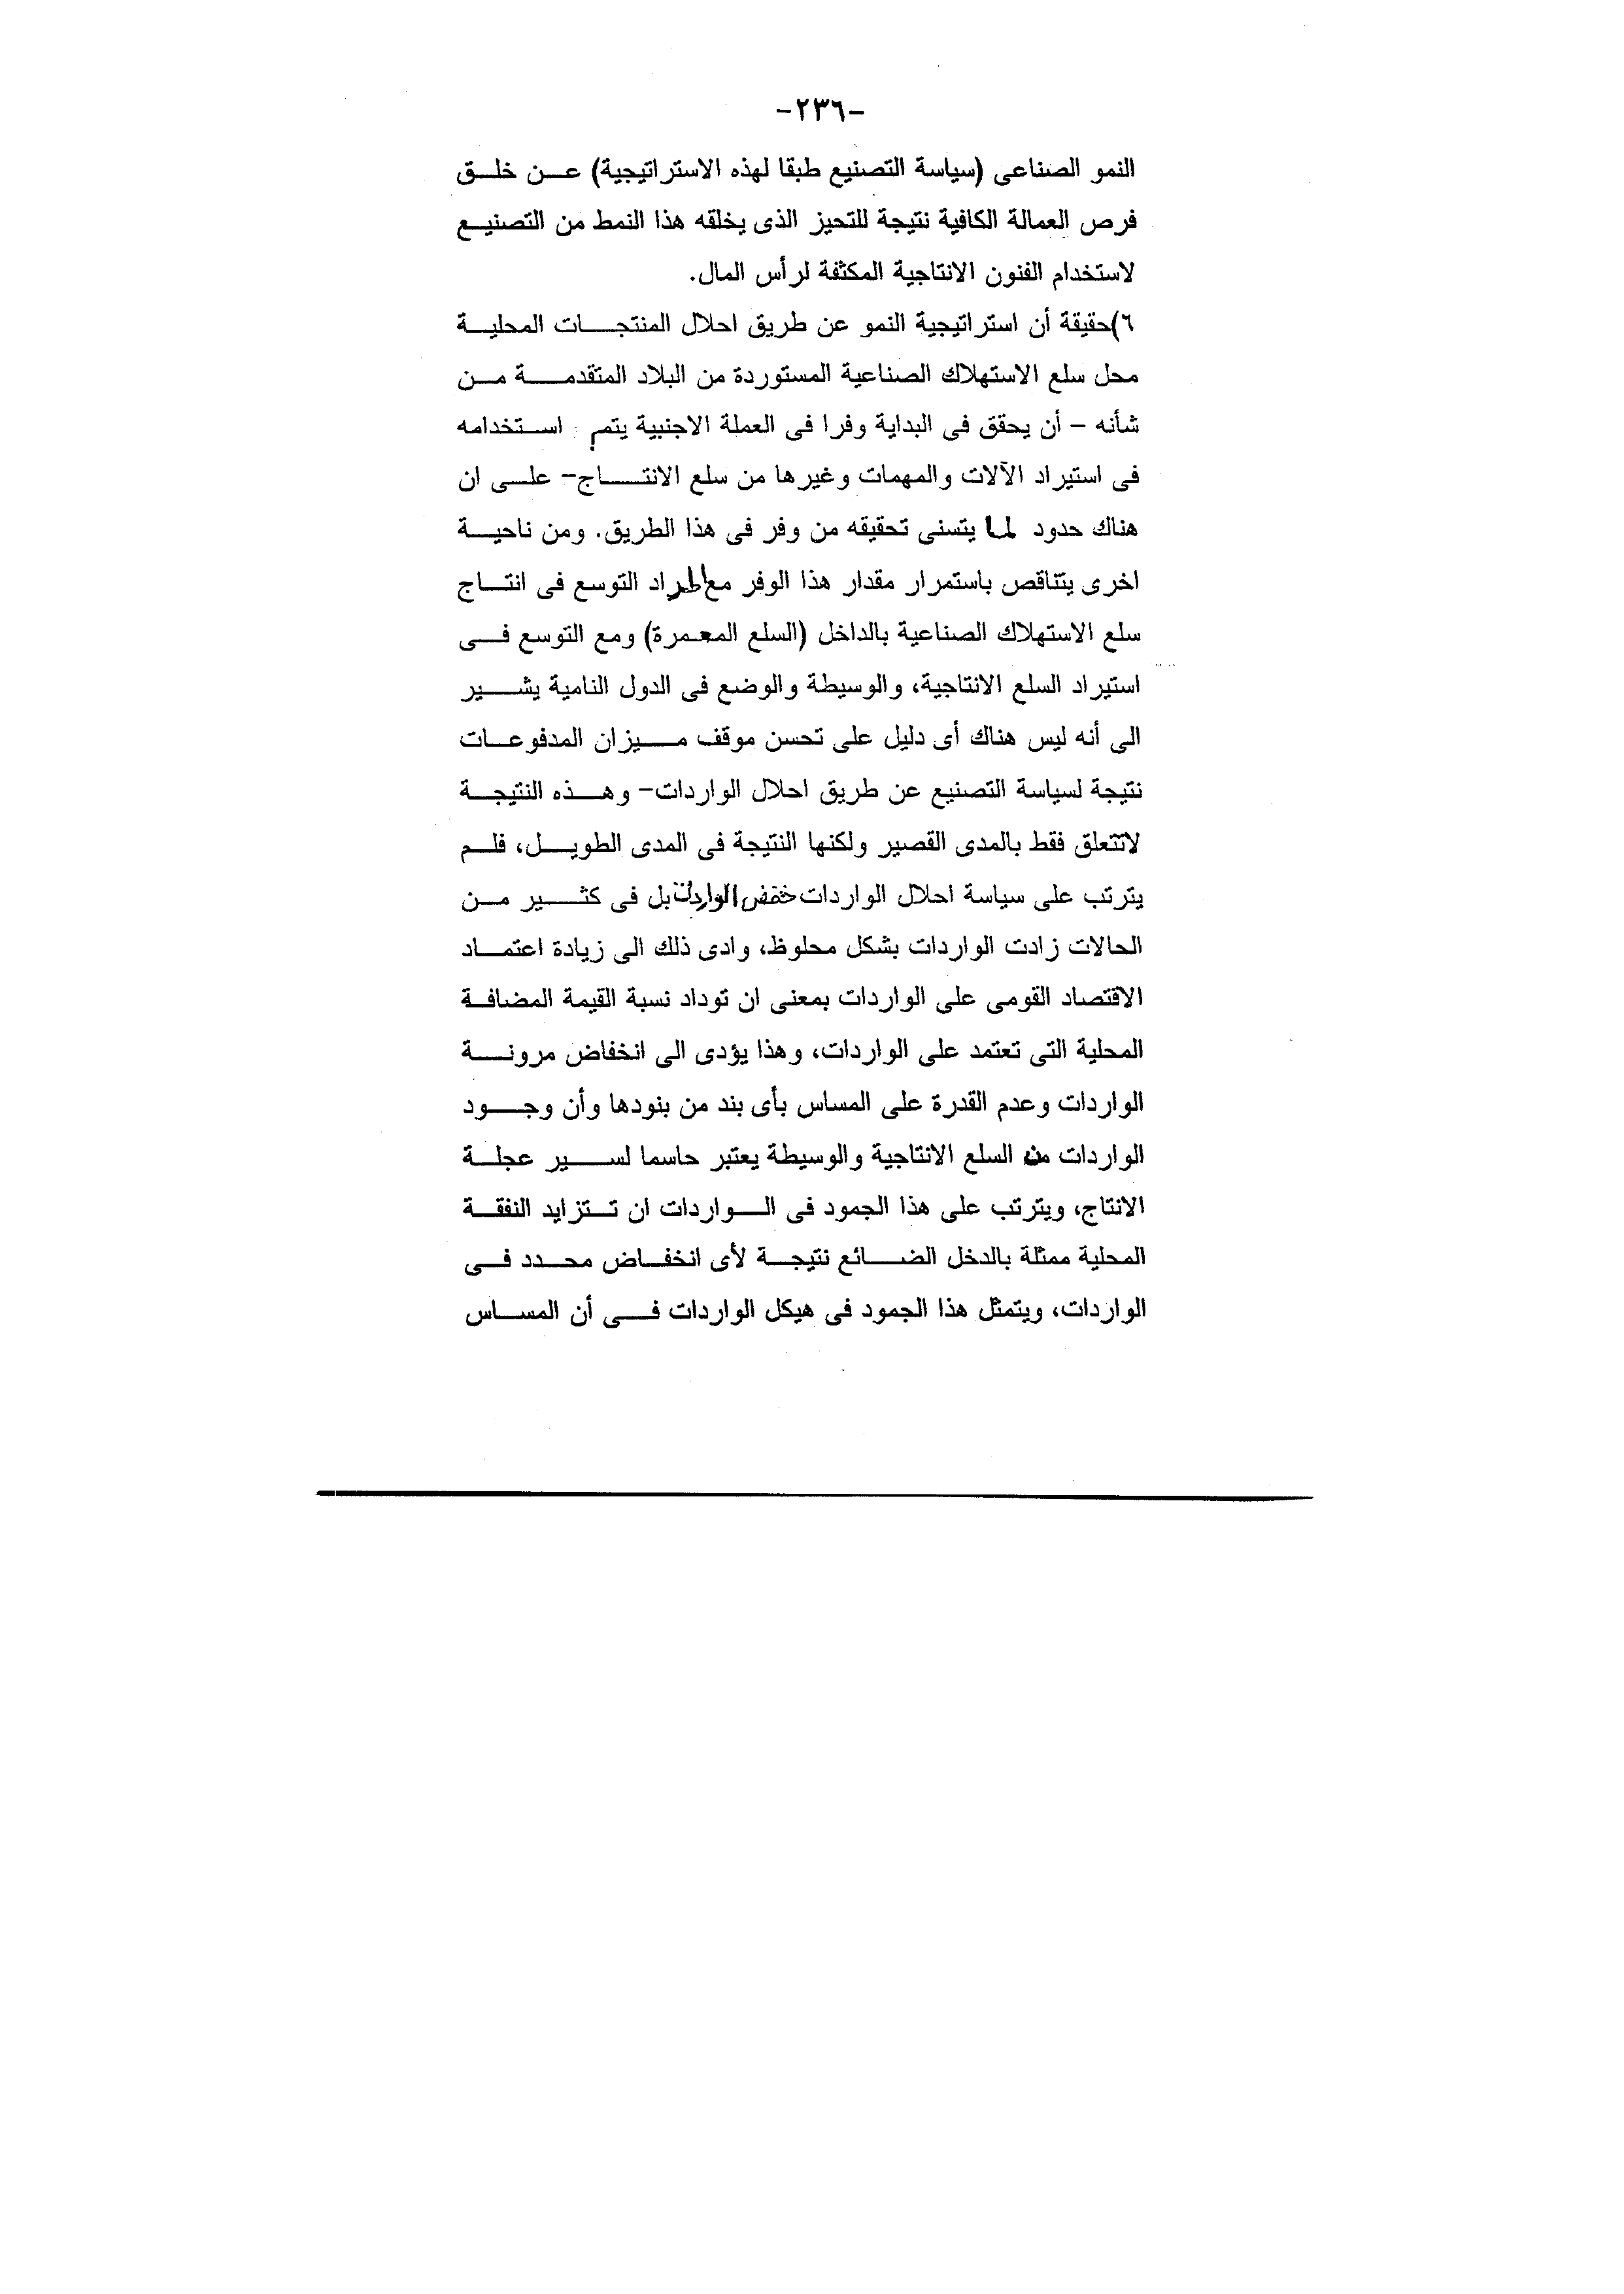 -٢٣٦-
النمو الصناعى (سياسة التصنيع طبقا لهذه الاستراتيجية) عن خلق
فرص العمالة الكافية نتيجة للتحيز الذى يخلقه هذا النمط من التصنيع
لاستخدام الفنون الانتاجية المكثفة لرأس المال.
٦)حقيقة أن استراتيجية النمو عن طريق احلال المنتجات المحلية
محل سلع الاستهلاك الصناعية المستوردة من البلاد المتقدمة من
شأنه - أن يحقق فى البداية وفرا فى العملة الاجنبية يتم استخدامه
فى استيراد الآلات والمهمات وغيرها من سلع الانتاج- على ان
هناك حدود لما يتسنى تحقيقه من وفر فى هذا الطريق. ومن ناحية
اخرى يتناقص باستمرار مقدار هذا الوفر مع اطراد التوسع فى انتاج
سلع الاستهلاك الصناعية بالداخل (السلع المعمرة) ومع التوسع فى
استيراد السلع الانتاجية، والوسيطة والوضع فى الدول النامية يشير
الى أنه ليس هناك أى دليل على تحسن موقف ميزان المدفوعات
نتيجة لسياسة التصنيع عن طريق احلال الواردات- وهذه النتيجة
لاتتعلق فقط بالمدى القصير ولكنها النتيجة فى المدى الطويل، فلم
يترتب على سياسة احلال الواردات خفض الواردات بل فى كثير من
الحالات زادت الواردات بشكل محلوظ، وادى ذلك الى زيادة اعتماد
الاقتصاد القومى على الواردات بمعنى ان توداد نسبة القيمة المضافة
المحلية التى تعتمد على الواردات، وهذا يؤدى الى انخفاض مرونة
الواردات وعدم القدرة على المساس بأى بند من بنودها وأن وجود
الواردات من السلع الانتاجية والوسيطة يعتبر حاسما لسير عجلة
الانتاج، ويترتب على هذا الجمود فى الواردات ان تتزايد النفقة
المحلية ممثلة بالدخل الضائع نتيجة لأى انخفاض محدد فى
الواردات، ويتمثل هذا الجمود فى هيكل الواردات فى أن المساس